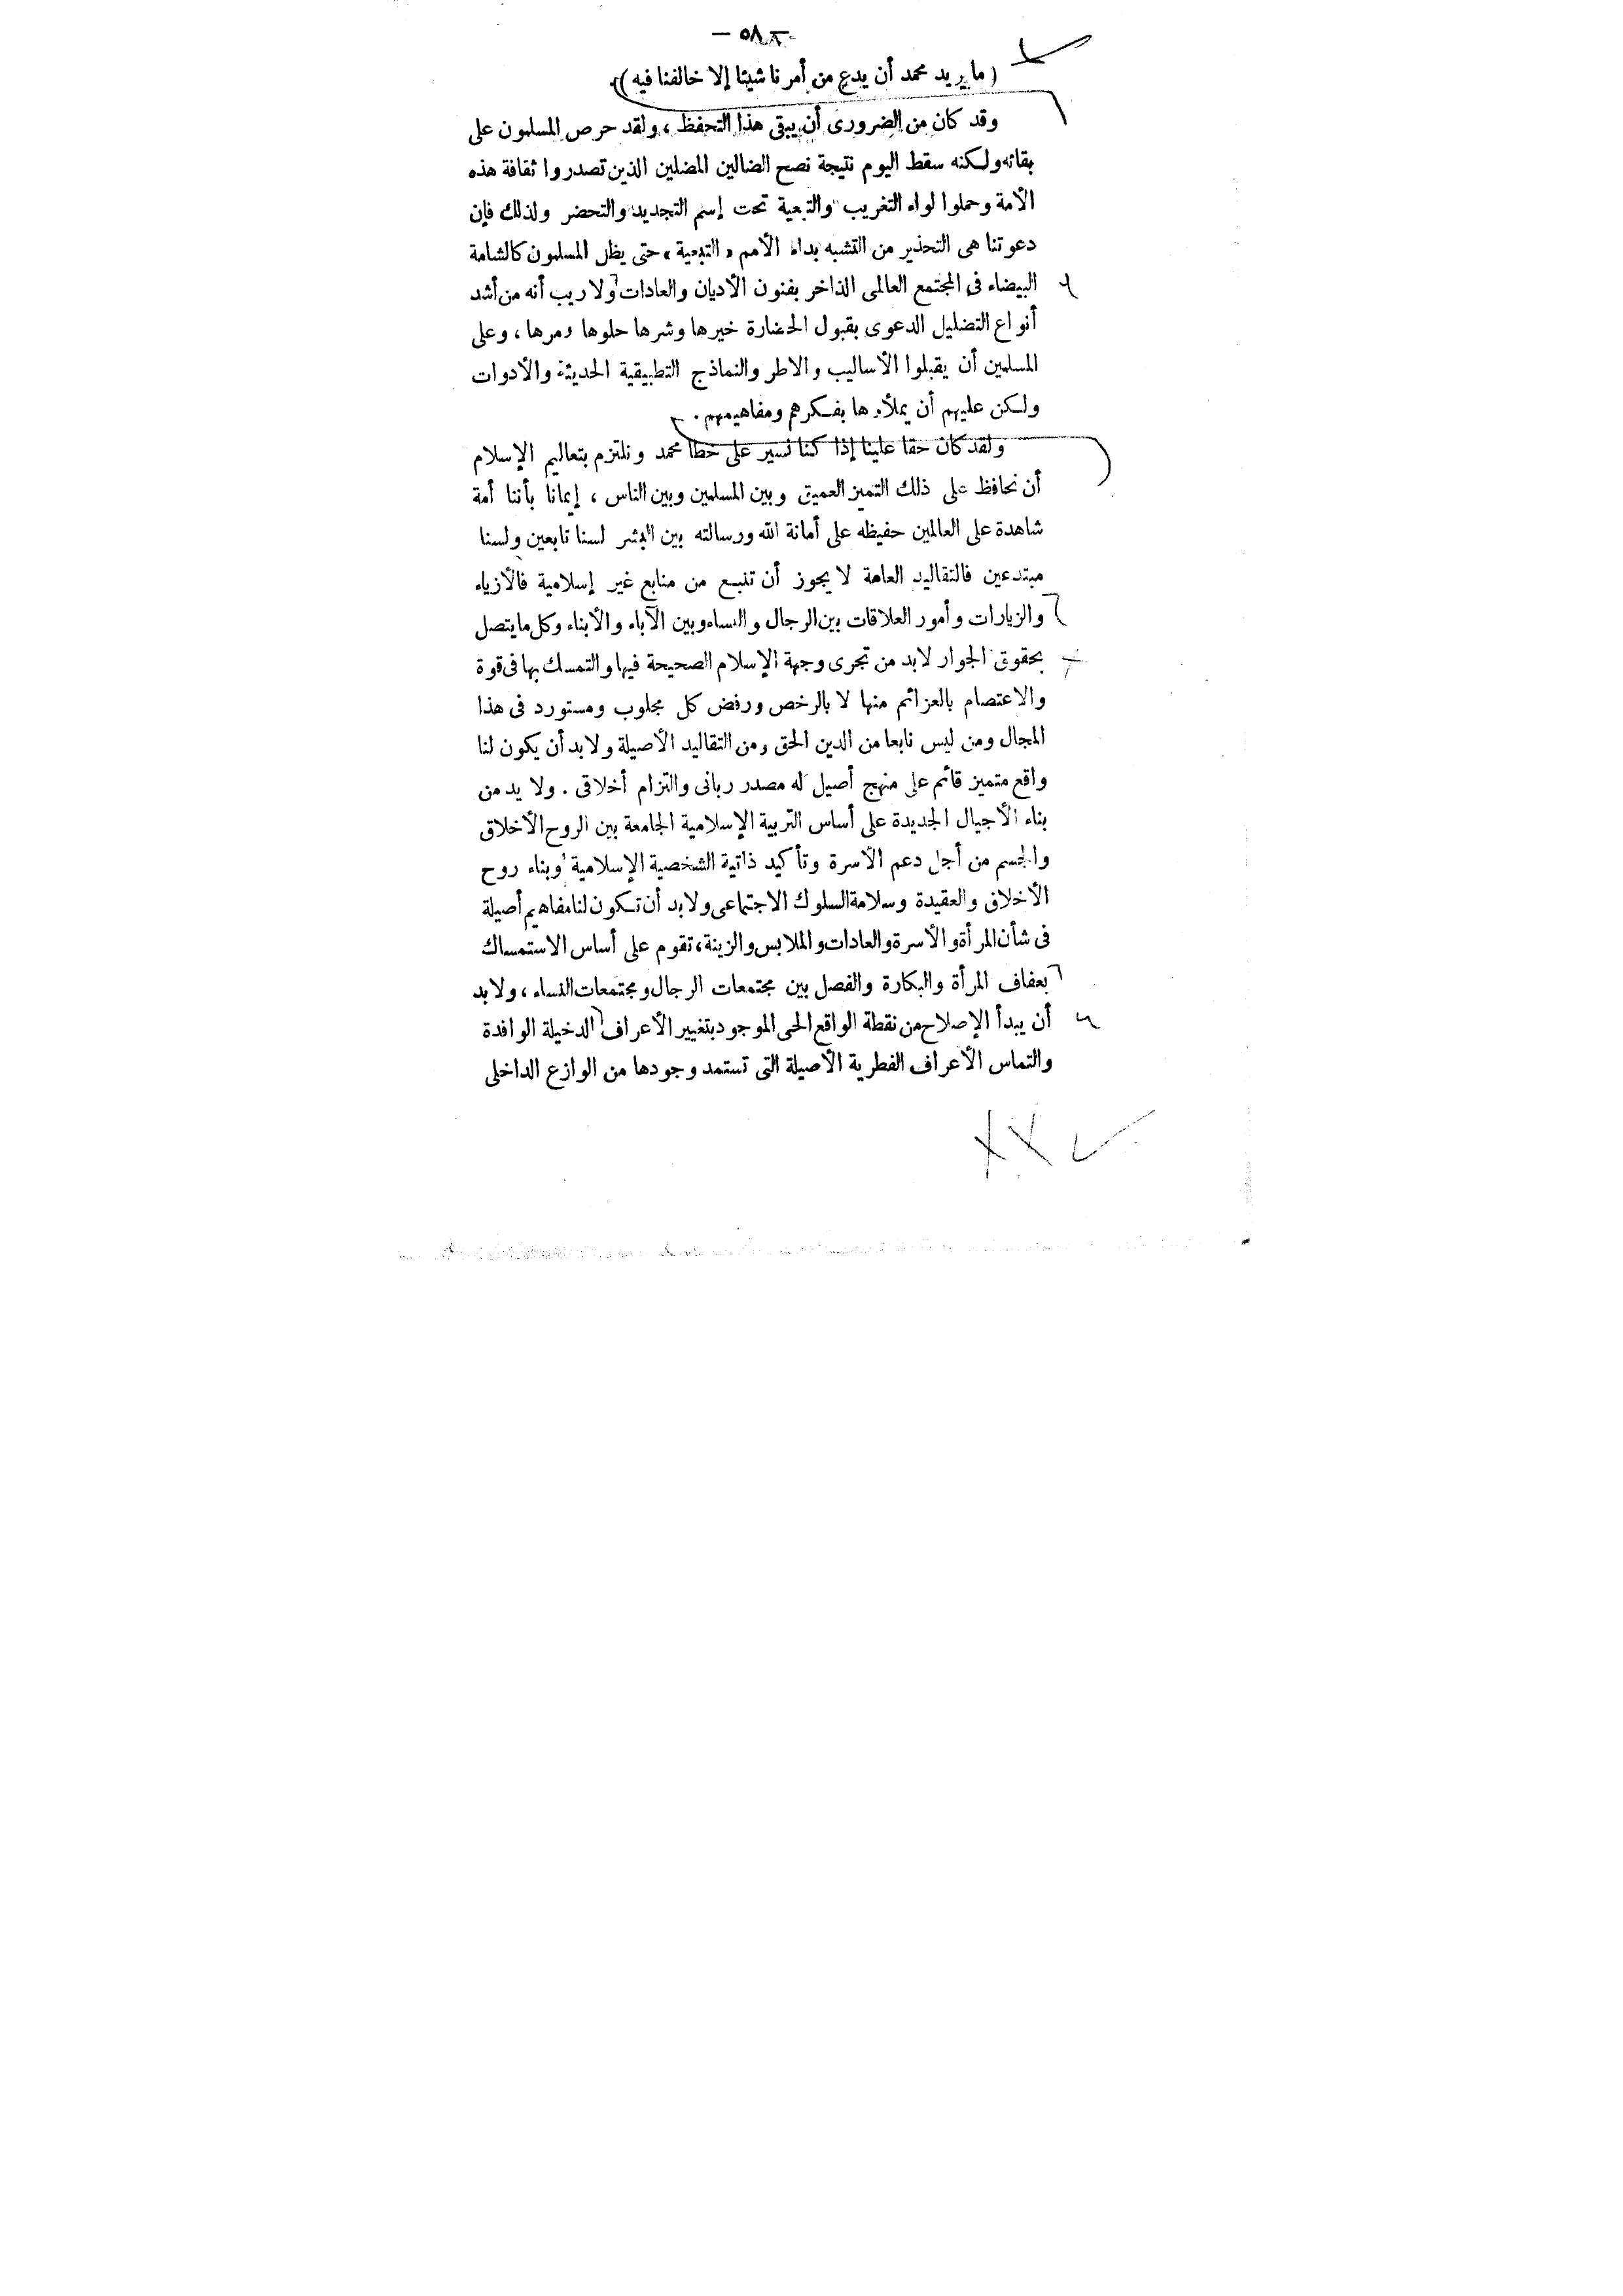 — ٥٨ —
( ما يريد محمد أن يدع من أمرنا شيئا إلا خالفنا فيه )
وقد كان من الضرورى أن يبقى هذا التحفظ ، ولقد حرص المسلمون على
بقائه ولكنه سقط اليوم نتيجة نصح الضالين المضلين الذين تصدروا ثقافة هذه
الأمة وحملوا لواء التغريب والتبعية تحت إسم التجديد والتحضر ولذلك فإن
دعوتنا هى التحذير من التشبه بداء الأمم « التبعية » حتى يظل المسلمون كالشامة
البيضاء فى المجتمع العالمى الذاخر بفنون الأديان والعادات ولا ريب أنه من أشد
أنواع التضليل الدعوى بقبول الحضارة خيرها وشرها حلوها ومرها ، وعلى
المسلمين أن يقبلوا الأساليب والاطر والنماذج التطبيقية الحديثة والأدوات
ولكن عليهم أن يملأوها بفكرهم ومفاهيمهم .
ولقد كان حقا علينا إذا كنا نسير على خطا محمد ونلتزم بتعاليم الإسلام
أن نحافظ على ذلك التميز العميق وبين المسلمين وبين الناس ، إيمانا بأننا أمة
شاهدة على العالمين حفيظه على أمانة الله ورسالته بين البشر لسنا تابعين ولسنا
مبتدعين فالتقاليد العامة لا يجوز أن تنبع من منابع غير إسلامية فالأزياء
والزيارات وأمور العلاقات بين الرجال والنساء وبين الآباء والأبناء وكل ما يتصل
بحقوق الجوار لابد من تجرى وجهة الإسلام الصحيحة فيها والتمسك بها فى قوة
والاعتصام بالعزائم منها لا بالرخص ورفض كل مجلوب ومستورد فى هذا
المجال ومن ليس نابعا من الدين الحق ومن التقاليد الأصيلة ولابد أن يكون لنا
واقع متميز قائم على منهج أصيل له مصدر ربانى والتزام أخلاقى . ولا يد من
بناء الأجيال الجديدة على أساس التربية الإسلامية الجامعة بين الروح الأخلاق
والجسم من أجل دعم الأسرة وتأكيد ذاتية الشخصية الإسلامية وبناء روح
الأخلاق والعقيدة وسلامة السلوك الاجتماعى ولابد أن تكون لنا مفاهيم أصيلة
فى شأن المرأة والأسرة والعادات والملابس والزينة ، تقوم على أساس الاستمساك
بعفاف المرأة والبكارة والفصل بين مجتمعات الرجال ومجتمعات النساء ، ولابد
أن يبدأ الإصلاح من نقطة الواقع الحى الموجود بتغيير الأعراف الدخيلة الوافدة
والتماس الأعراف الفطرية الأصيلة التى تستمد وجودها من الوازع الداخلى